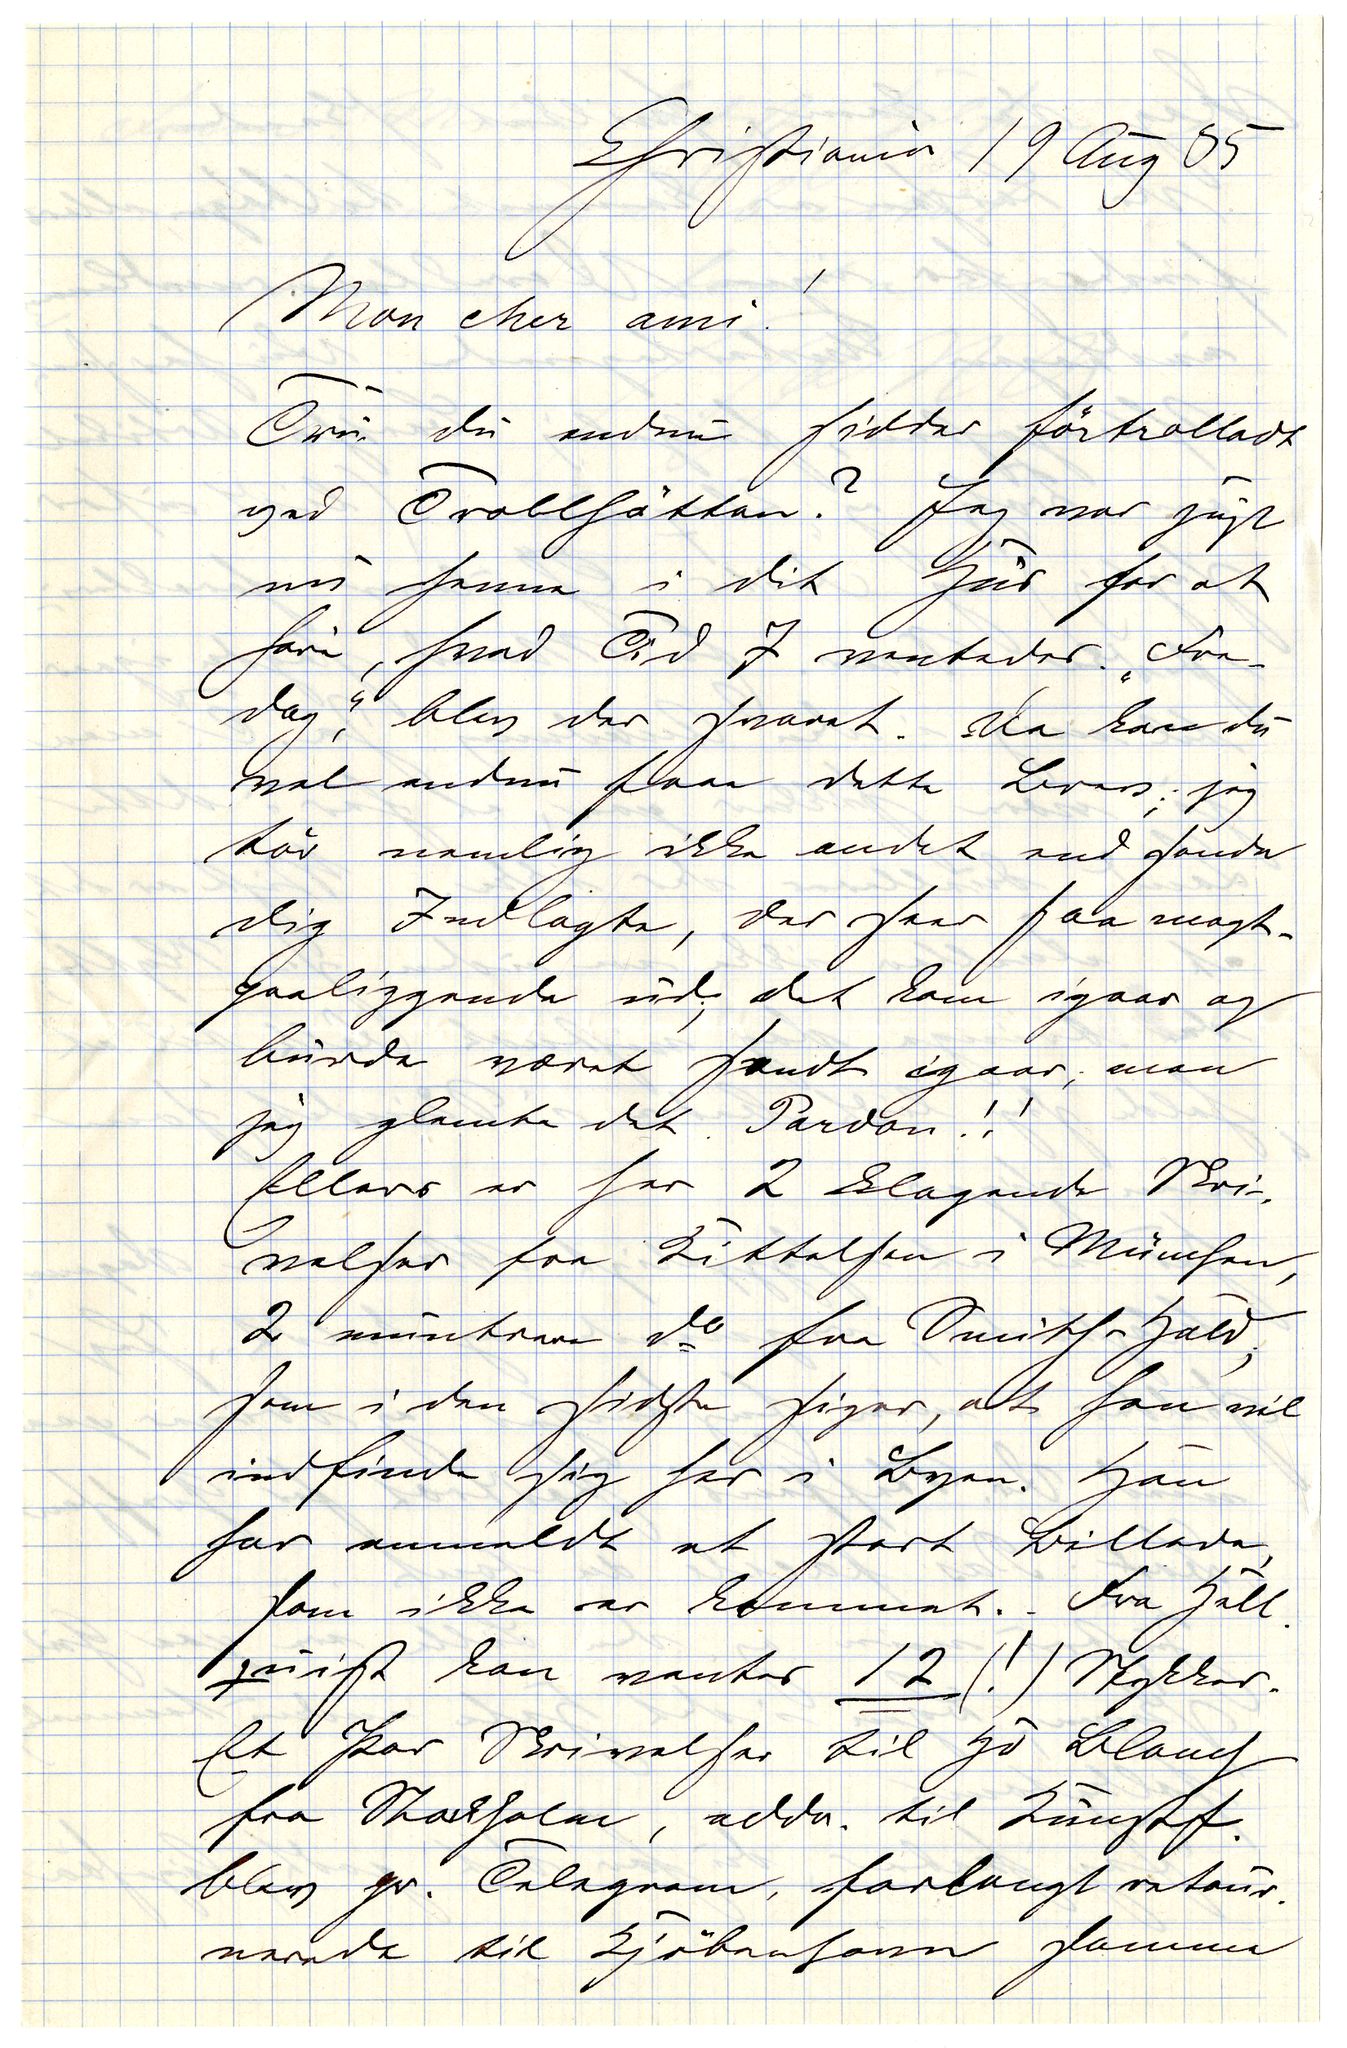 Christiania 19 Aug 85
Mon cher ami!
Tru du endnu sidder förtrolladt
ved Trollhättan? Jeg var just
nu henne i dit Hus for at
høre, hvad Tid I ventedes. „Fre-
dag“, blev der svaret. Da kan du
vel endnu faae dette Brev; jeg
tør nemlig ikke andet end sende
dig Indlagte, der seer saa magt-
paaliggende ud; det kom igaar og
burde været sendt igaar, men
jeg glemte det. Pardon!!
Ellers er her 2 klagende Skri-
velser fra Kittelsen i München,
2 muntrere do fra Smith-Hald,
som i den sidste siger, at han vil
indfinde sig her i Byen. Han
har anmeldt et stort Billede,
som ikke er kommet. Fra Häll-
quist kan ventes 12 (!) Stykker.
Et Par Skrivelser til Hö Blanch
fra Stockholm, addr. til Kunstf.
blev pr. Telegram, forlangt retour-
nerede til Kjöbenhavn samme